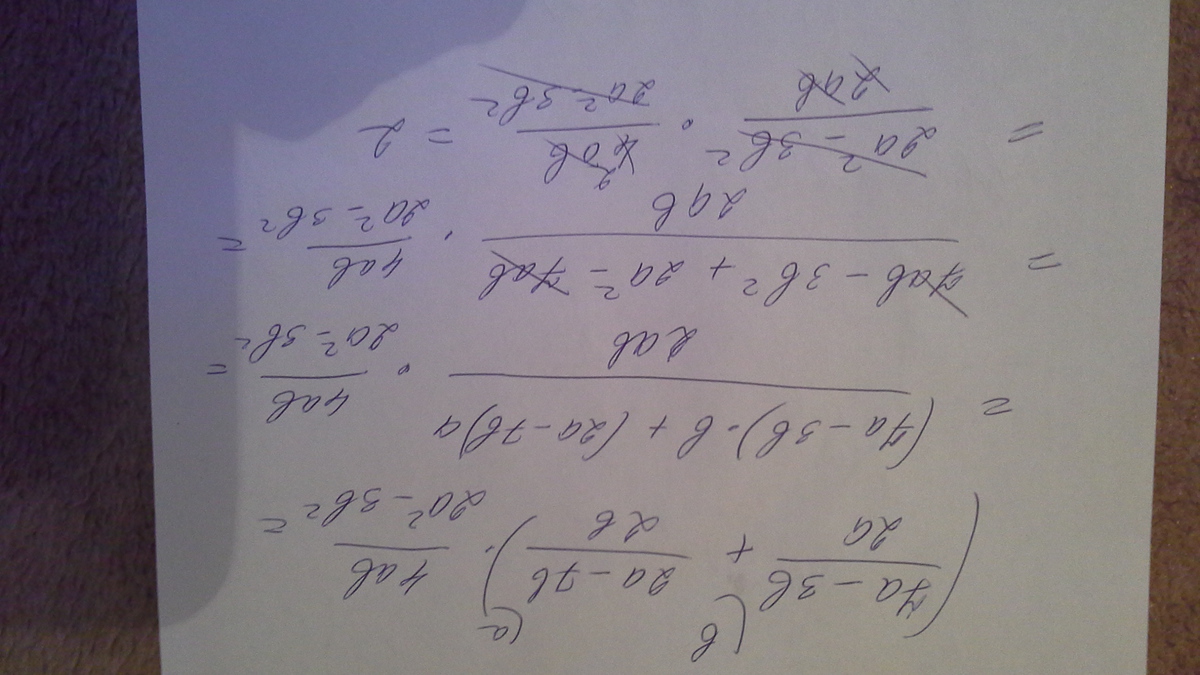 (b (a
( (7a - 3b)/(2a) + (2a - 7b)/(2b) ) · (4ab)/(2a² - 3b²) =
= ((7a - 3b) · b + (2a - 7b)a)/(2ab) · (4ab)/(2a² - 3b²) =
= (7ab - 3b² + 2a² - 7ab)/(2ab) · (4ab)/(2a² - 3b²) =
= (2a² - 3b²)/(2ab) · (4ab 2)/(2a² - 3b²) = 2